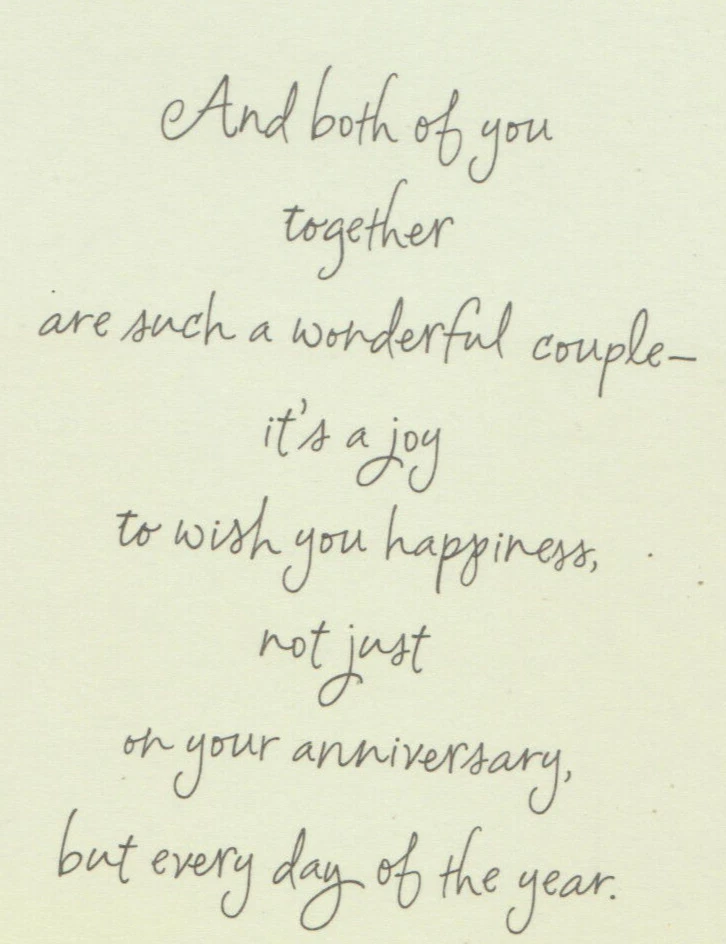 And both of you
together
are such a wonderful couple—
it's a joy
to wish you happiness,
not just
on your anniversary,
but every day of the year.